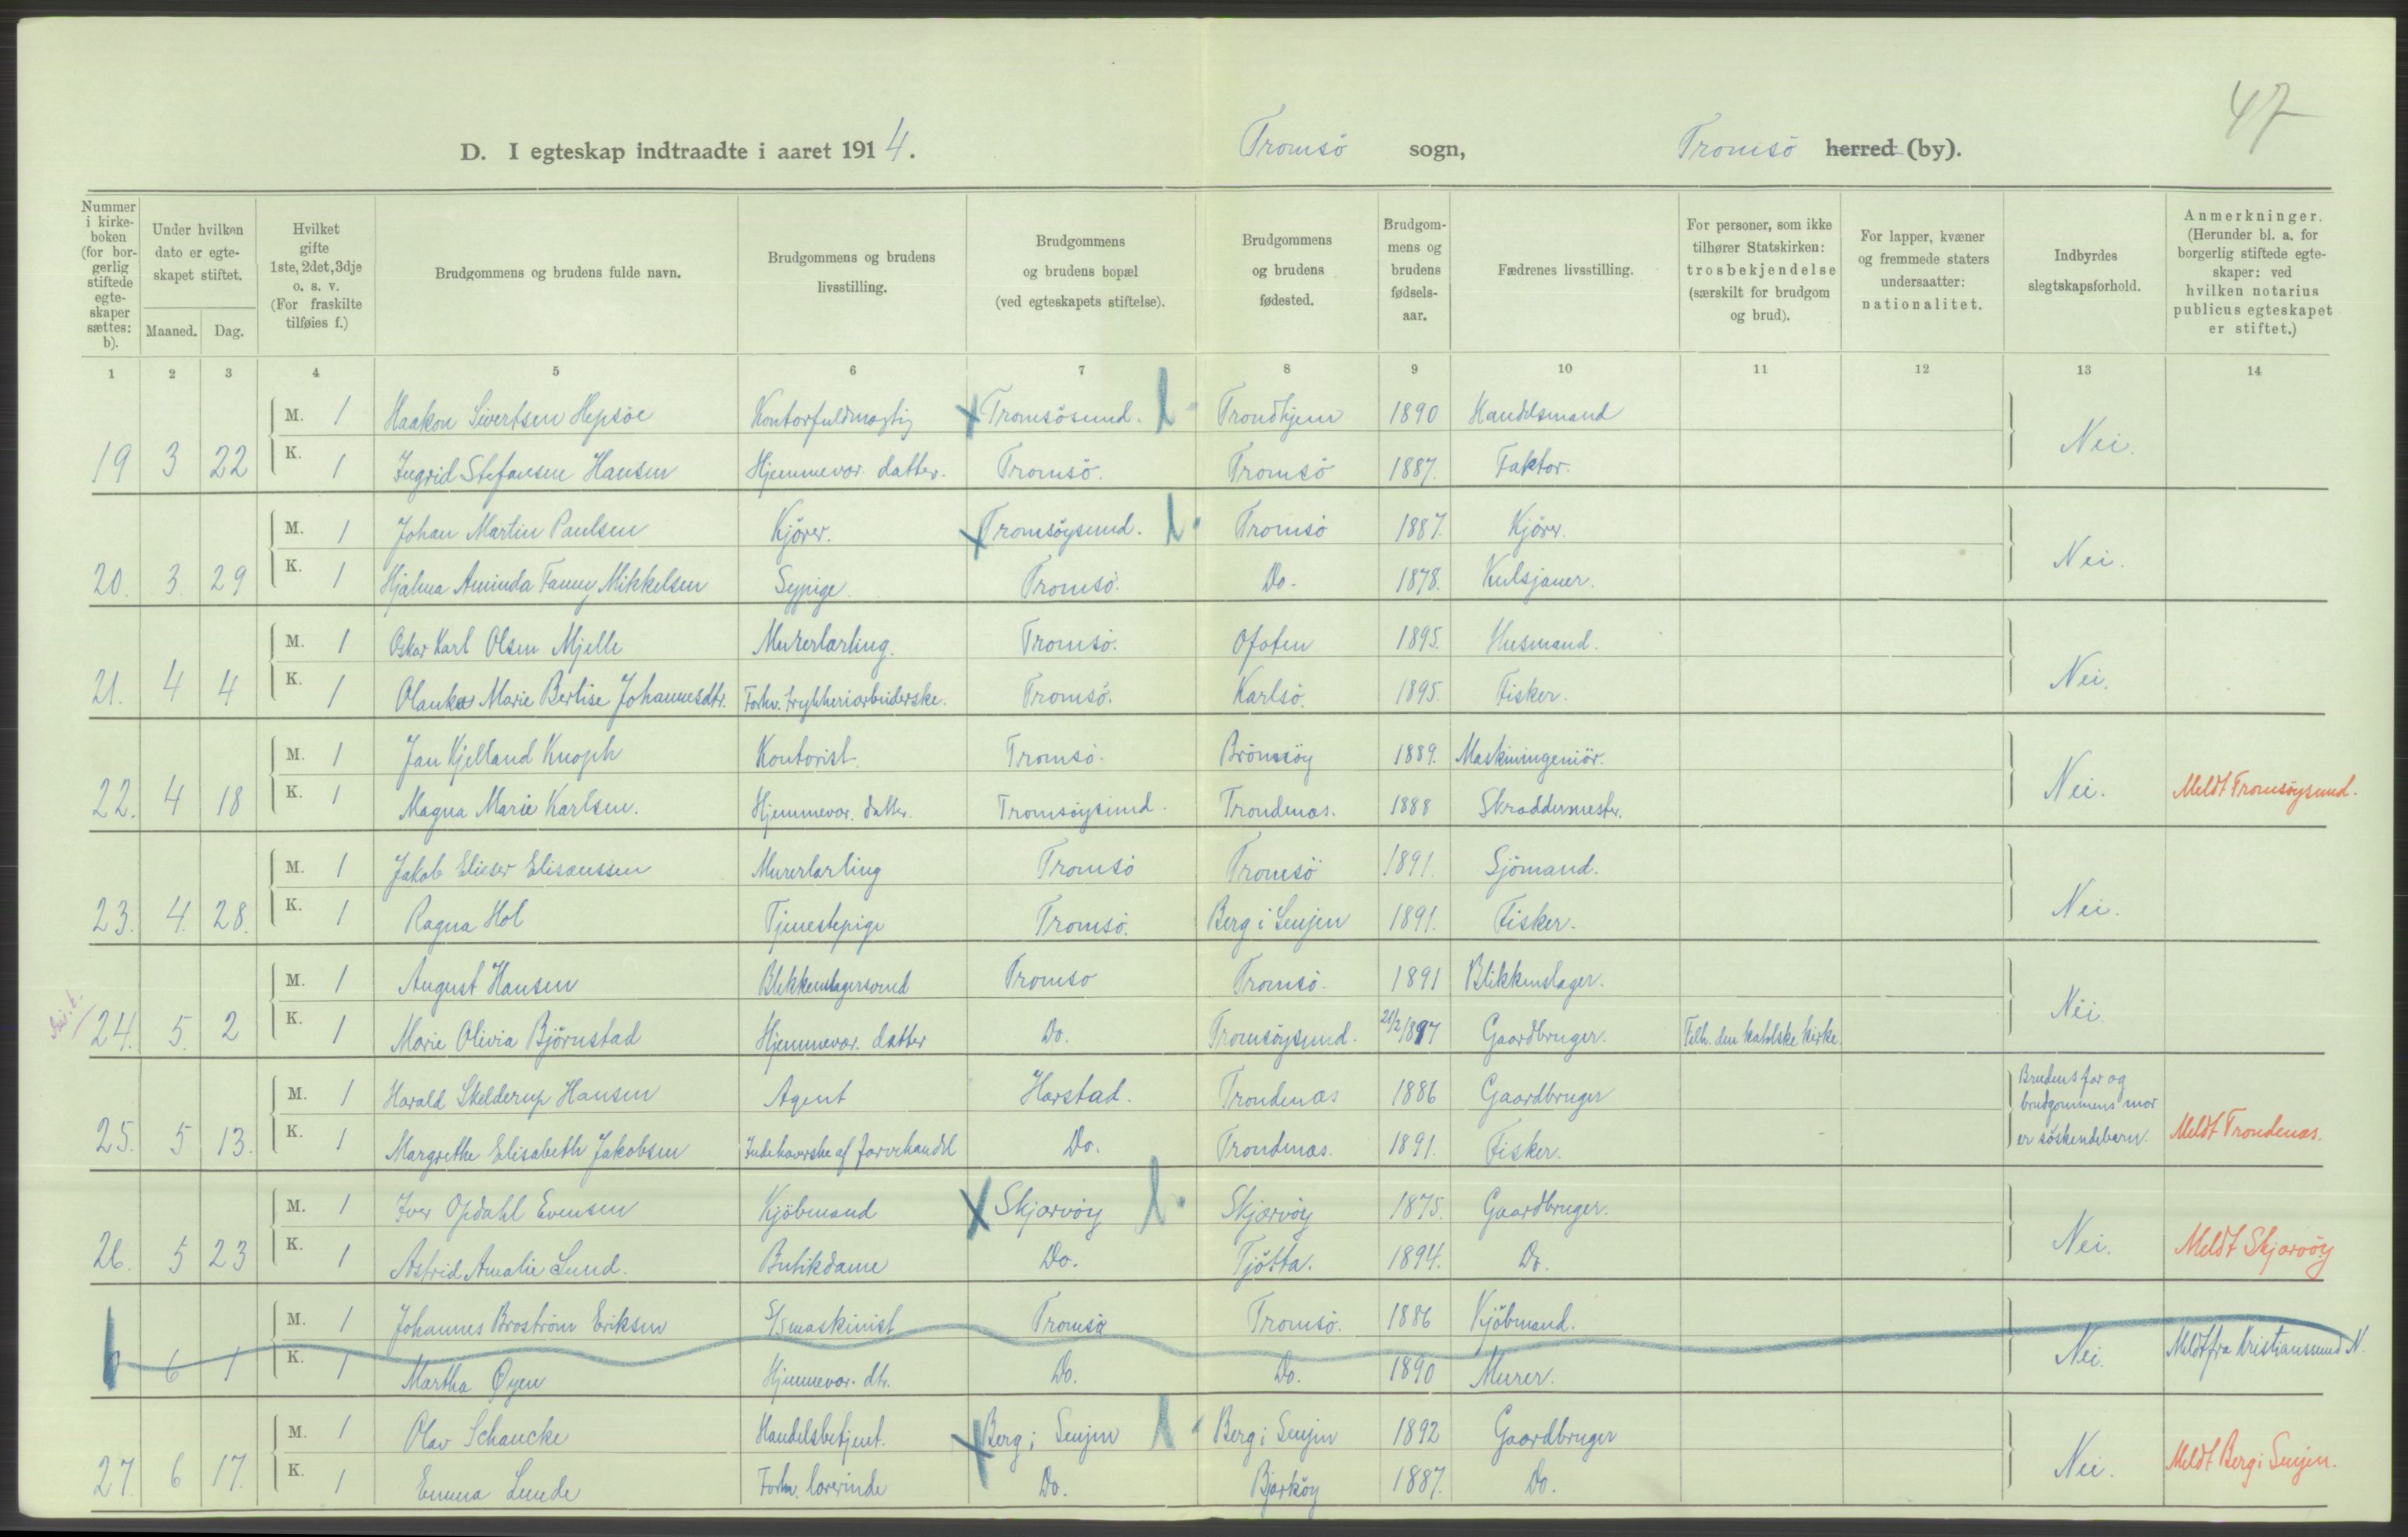 47
D. I egteskap indtraadte i aaret 1914. Tromsö sogn, Tromsö herred (by).
Nummer i kirkeboken (for borgerlig stiftede egteskaper sættes: b).
Under hvilken dato er egteskapet stiftet.
Maaned. Dag.
Hvilket gifte 1ste, 2det, 3dje o. s. v. (For fraskilte tilføies f.)
Brudgommens og brudens fulde navn.
Brudgommens og brudens livsstilling.
Brudgommens og brudens bopæl (ved egteskapets stiftelse).
Brudgommens og brudens fødested.
Brudgommens og brudens fødselsaar.
Fædrenes livsstilling.
For personer, som ikke tilhører Statskirken: trosbekjendelse (særskilt for brudgom og brud).
For lapper, kvæner og fremmede staters undersaatter: nationalitet.
Indbyrdes slegtskapsforhold.
Anmerkninger. (Herunder bl. a. for borgerlig stiftede egteskaper: ved hvilken notarius publicus egteskapet er stiftet.)
1 2 3 4 5 6 7 8 9 10 11 12 13 14
M. 1 Haakon Sivertsen Hepsöe Kontorfuldmægtig Tromsösund. Trondhjem 1890 Handelsmand
19 3 22 K. 1 Ingrid Stefansen Hansen Hjemmevær. datter. Tromsö. Tromsö 1887. Faktor. Nei.
M. 1 Johan Martin Paulsen Kjörer. Tromsöysund. Tromsö 1887. Kjörer.
20. 3. 29 K. 1 Hjalma Aminda Fanny Mikkelsen Sypige. Tromsö. Do. 1878. Kulsjauer. Nei.
M. 1 Oskar Karl Olsen Mjelle Murerlærling. Tromsö. Ofoten 1895. Husmand.
21. 4 4 K. 1 Olanka Marie Bertise Johannesdtr. Forhv. trykkeriarbeiderske. Tromsö. Karlsö. 1895. Fisker. Nei.
M. 1 Jan Kjelland Knoph Kontorist. Tromsö. Brönnöy 1889. Maskiningeniör.
22. 4 18 K. 1 Magna Marie Karlsen. Hjemmevær. datter. Tromsöysund. Trondenæs. 1888 Skræddermester. Nei. Meldt Tromsöysund.
M. 1 Jakob Elieser Elisaussen Murerlærling Tromsö Tromsö 1891. Sjömand.
23. 4. 28. K. 1 Ragna Hol Tjenestepige Tromsö. Berg i Senjen 1891. Fisker. Nei.
M. 1 August Hansen Blikkenslagersvend Tromsö Tromsö. 1891 Blikkenslager.
24. 5. 2 K. 1 Marie Olivia Björnstad Hjemmevær. datter Do. Tromsöysund. 21/2 1897 Gaardbruger. Tilh. den katolske kirke. Nei
M. 1 Harald Skelderup Hansen Agent Harstad. Trondenæs 1886 Gaardbruger Brudens far og
brudgommens mor
25. 5 13. K. 1 Margrethe Elisabeth Jakobsen Indehaverske af farvehandel Do. Trondenæs. 1891. Fisker. er söskendebarn. Meldt Trondenæs.
M. 1 Iver Opdahl Evensen Kjöbmand Skjærvöy Skjærvöy 1875. Gaardbruger.
26. 5 23 K. 1 Astrid Amalie Lund. Butikdame Do. Tjötta. 1894. Do. Nei. Meldt Skjærvöy
M. 1 Johannes Broström Eriksen S/S maskinist Tromsö Tromsö. 1886 Kjöbmand.
6 1 K. 1 Martha Øyen Hjemmevær. dtr. Do. Do. 1890 Murer. Nei. Meldt fra Kristiansund N.
M. 1 Olav Schancke Handelsbetjent. Berg i Senjen Berg i Senjen 1892 Gaardbruger
27. 6 17. K. 1 Emma Lunde Forhv. lærerinde Do. Bjarköy 1887. Do. Nei. Meldt Berg i Senjen.